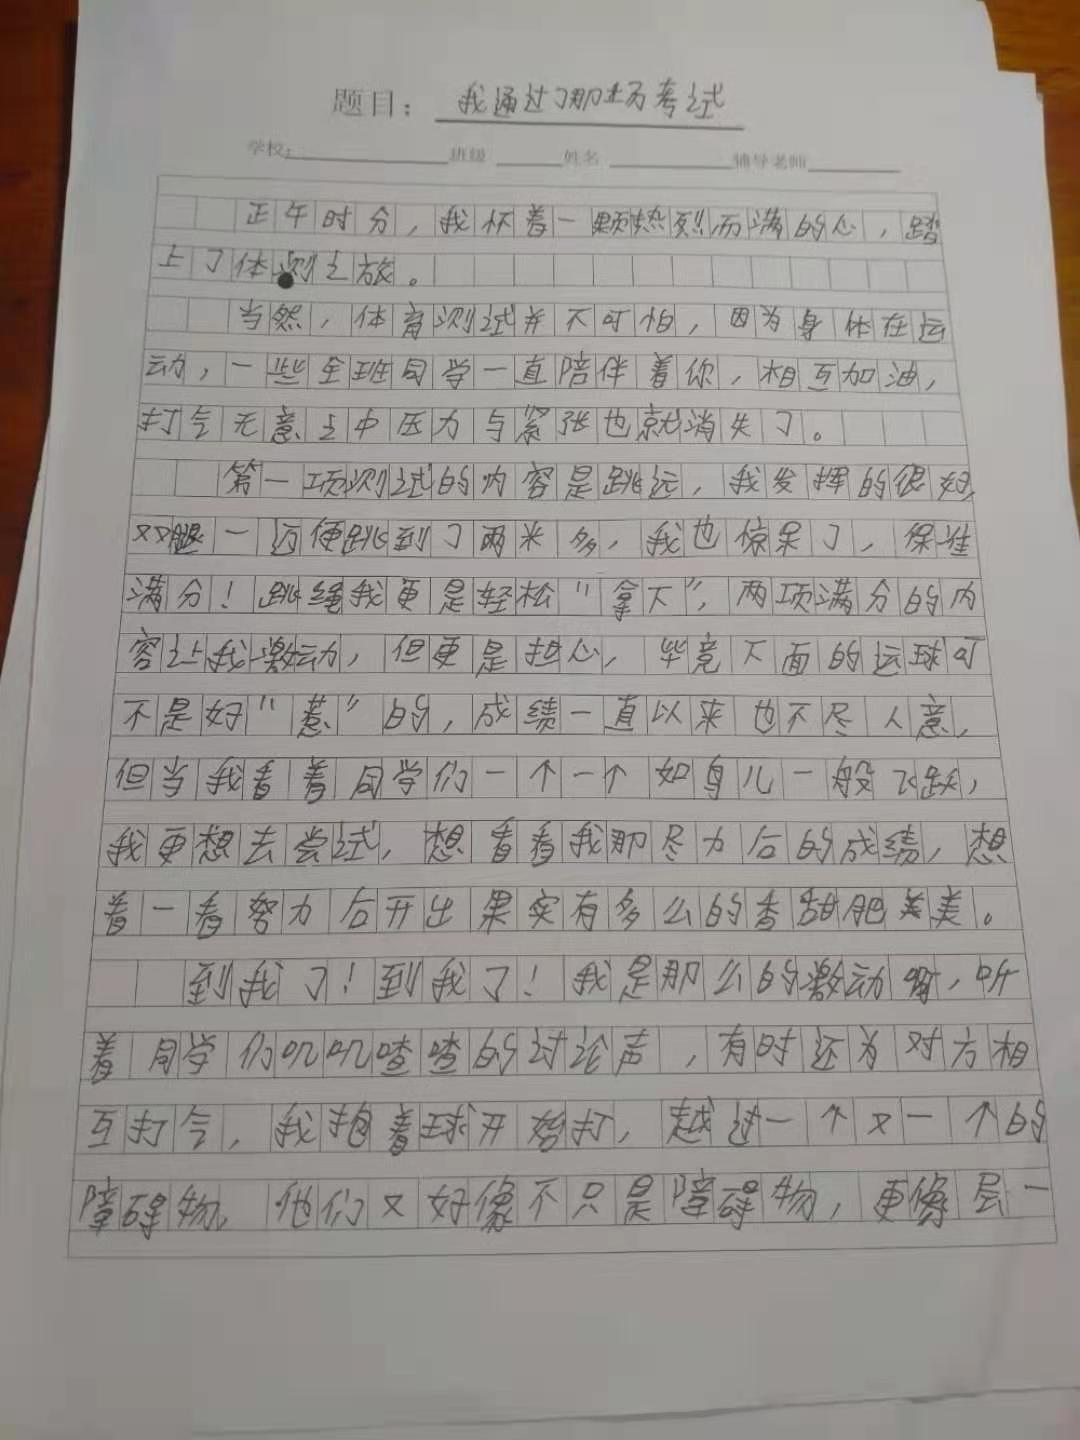 题目：我通过了那场考试
学校：班级 姓名 辅导老师
正午时分，我怀着一颗热烈而满的心，踏
上了体测之旅。
当然，体育测试并不可怕，因为身体在运
动，一些全班同学一直陪伴着你，相互加油，
打气无意之中压力与紧张也就消失了。
第一项测试的内容是跳远，我发挥的很好，
双腿一迈便跳到了两米多，我也惊呆了，保准
满分！跳绳我更是轻松“拿下”，两项满分的内
容让我激动，但更是担心，毕竟下面的运球可
不是好“惹”的，成绩一直以来也不尽人意，
但当我看着同学们一个一个如鸟儿一般飞跃，
我更想去尝试，想看看我那尽力后的成绩，想
着一看努力后开出果实有多么的香甜肥美。
到我了！到我了！我是那么的激动啊，听
着同学们叽叽喳喳的讨论声，有时还为对方相
互打气，我抱着球开始打，越过一个又一个的
障碍物，他们又好像不只是障碍物，更像层一